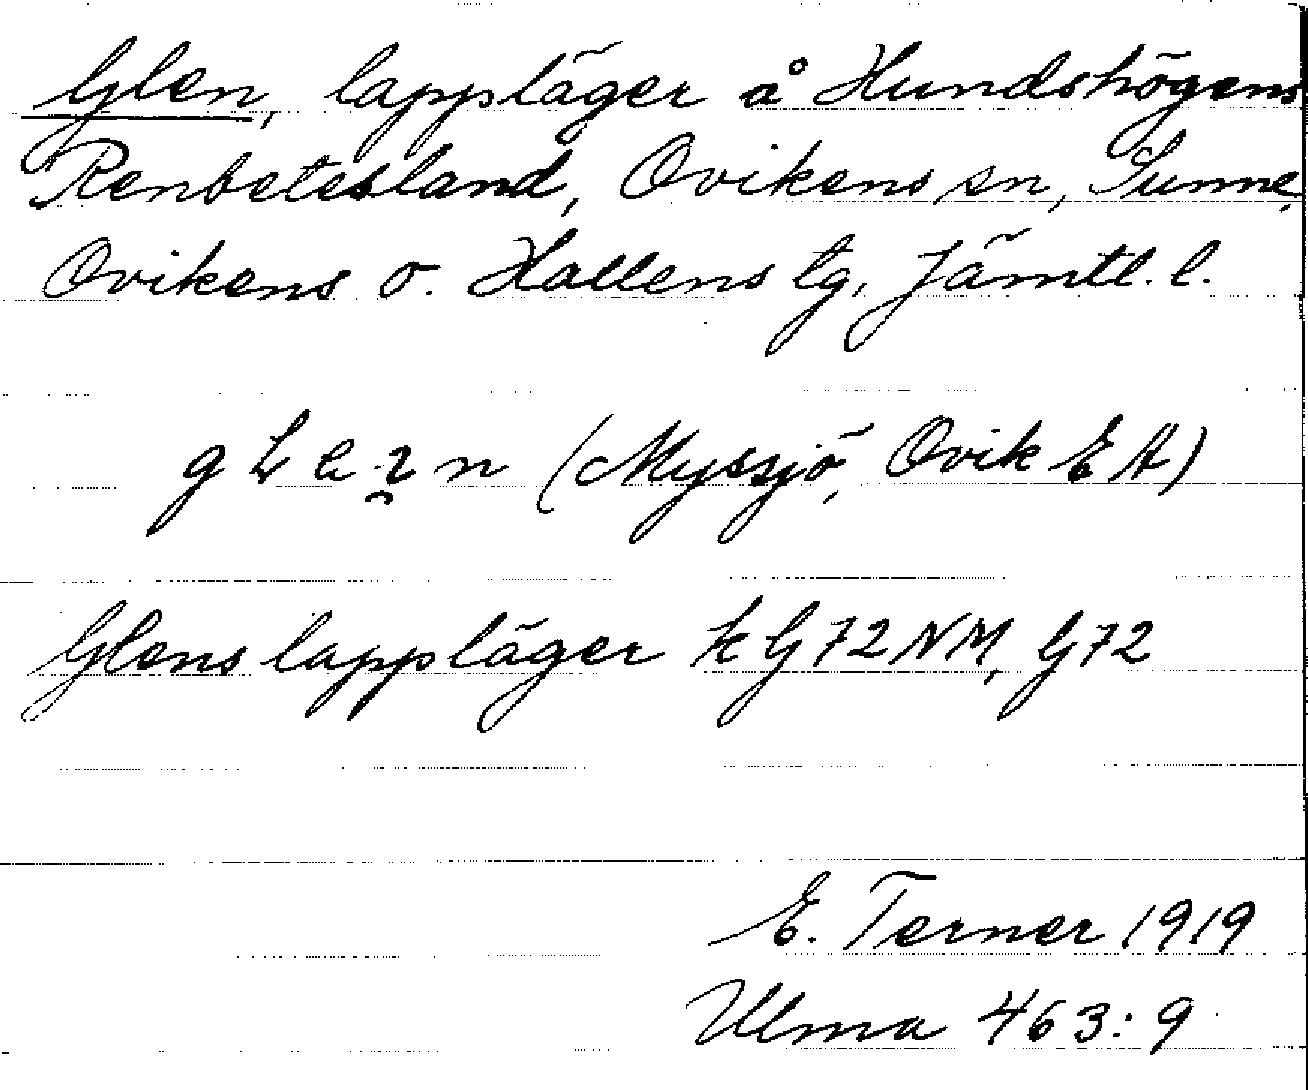 Glen, lappläger å Hundshögens
Renbetesland, Ovikens sn, Sunne,
Ovikens o. Hallens tg, Jämtl. l.
(Myssjö, Ovik EA)
Glens lappläger k G72NM, G72
E. Terner 1919
Ulma 463:9